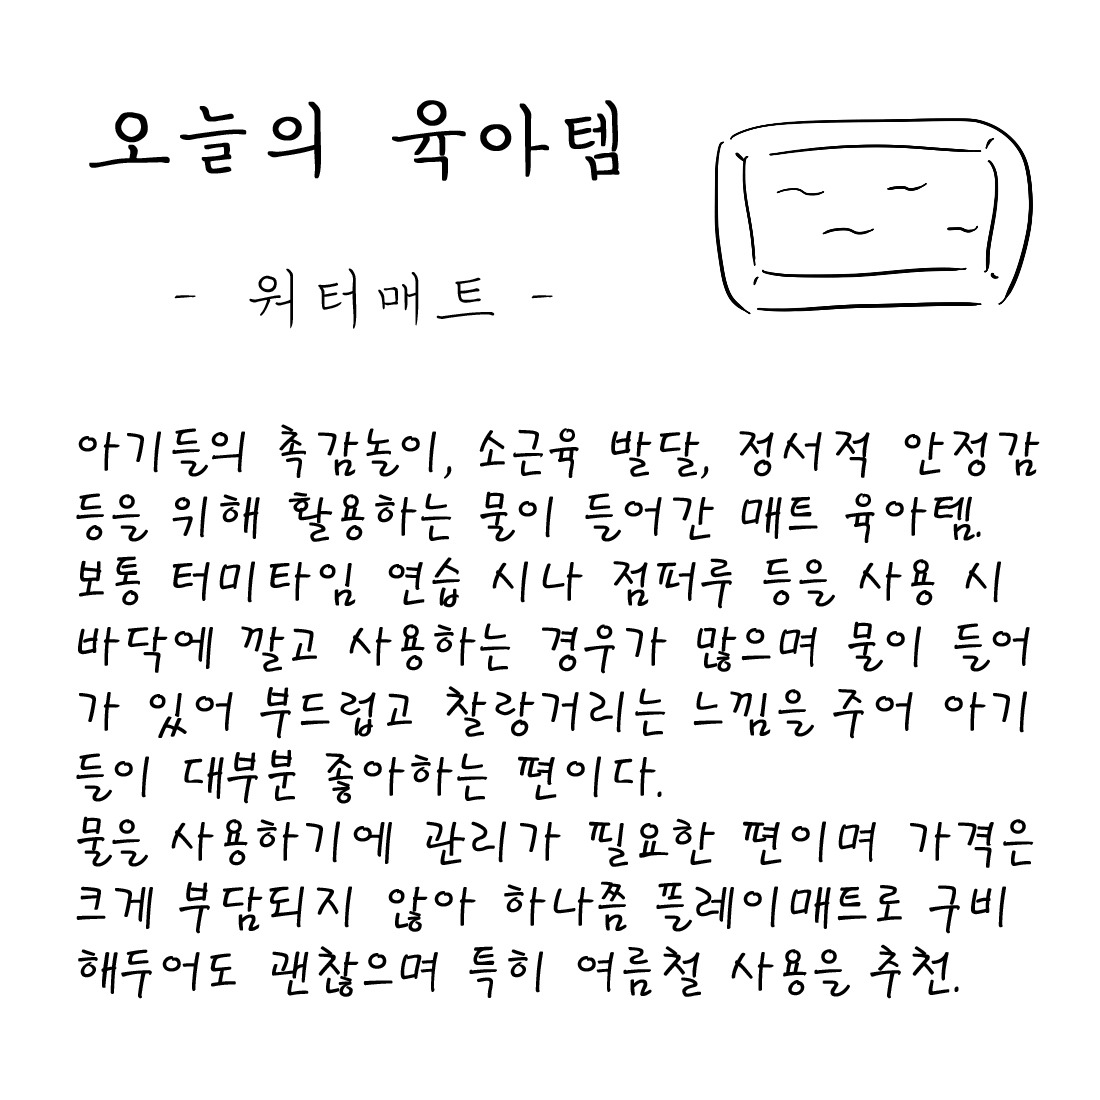 오늘의 육아템
- 워터매트 -
아기들의 촉감놀이, 소근육 발달, 정서적 안정감
등을 위해 활용하는 물이 들어간 매트 육아템.
보통 터미타임 연습 시나 점퍼루 등을 사용 시
바닥에 깔고 사용하는 경우가 많으며 물이 들어
가 있어 부드럽고 찰랑거리는 느낌을 주어 아기
들이 대부분 좋아하는 편이다.
물을 사용하기에 관리가 필요한 편이며 가격은
크게 부담되지 않아 하나쯤 플레이매트로 구비
해두어도 괜찮으며 특히 여름철 사용을 추천.